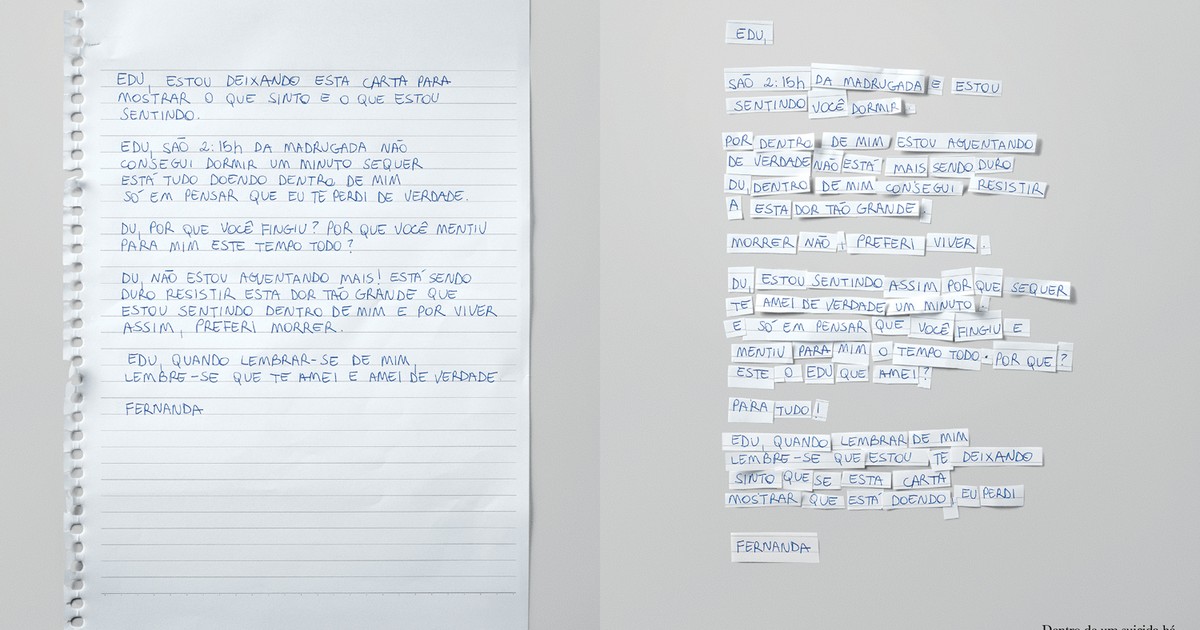 EDU, ESTOU DEIXANDO ESTA CARTA PARA
MOSTRAR O QUE SINTO E O QUE ESTOU
SENTINDO.
EDU, SÃO 2:15h DA MADRUGADA NÃO
CONSEGUI DORMIR UM MINUTO SEQUER
ESTÁ TUDO DOENDO DENTRO DE MIM
SÓ EM PENSAR QUE EU TE PERDI DE VERDADE.
DU, POR QUE VOCÊ FINGIU? POR QUE VOCÊ MENTIU
PARA MIM ESTE TEMPO TODO?
DU, NÃO ESTOU AGUENTANDO MAIS! ESTÁ SENDO
DURO RESISTIR ESTA DOR TÃO GRANDE QUE
ESTOU SENTINDO DENTRO DE MIM E POR VIVER
ASSIM, PREFERI MORRER.
EDU, QUANDO LEMBRAR-SE DE MIM,
LEMBRE-SE QUE TE AMEI E AMEI DE VERDADE
FERNANDA
EDU,
SÃO 2:15h DA MADRUGADA E ESTOU
SENTINDO VOCÊ DORMIR.
POR DENTRO DE MIM ESTOU AGUENTANDO
DE VERDADE NÃO ESTÁ MAIS SENDO DURO
DU, DENTRO DE MIM CONSEGUI RESISTIR
A ESTA DOR TÃO GRANDE.
MORRER NÃO, PREFERI VIVER.
DU, ESTOU SENTINDO ASSIM POR QUE SEQUER
TE AMEI DE VERDADE UM MINUTO.
E SÓ EM PENSAR QUE VOCÊ FINGIU E
MENTIU PARA MIM O TEMPO TODO. POR QUE?
ESTE O EDU QUE AMEI?
PARA TUDO!
EDU, QUANDO LEMBRAR DE MIM
LEMBRE-SE QUE ESTOU TE DEIXANDO
SINTO QUE SE ESTA CARTA
MOSTRAR QUE ESTÁ DOENDO, EU PERDI
FERNANDA